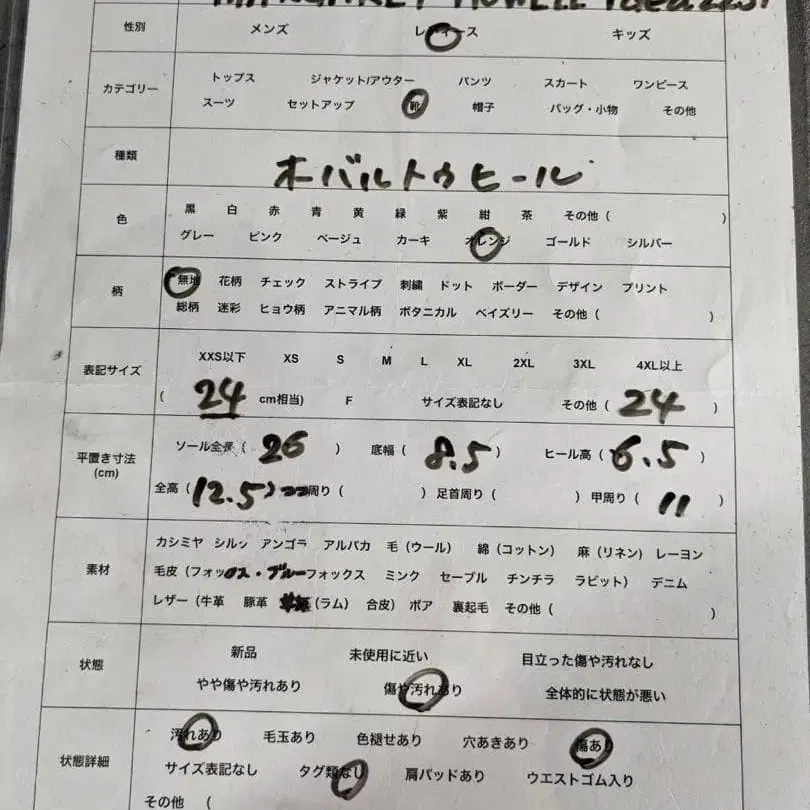 MARGARET HOWELL idea
性別 メンズ レディース キッズ
カテゴリー トップス ジャケット/アウター パンツ スカート ワンピース
スーツ セットアップ 靴 帽子 バッグ・小物 その他
種類 オーバルトゥヒール
色 黒 白 赤 青 黄 緑 紫 紺 茶 その他 ( )
グレー ピンク ベージュ カーキ オレンジ ゴールド シルバー
柄 無地 花柄 チェック ストライプ 刺繍 ドット ボーダー デザイン プリント
総柄 迷彩 ヒョウ柄 アニマル柄 ボタニカル ペイズリー その他 ( )
表記サイズ XXS以下 XS S M L XL 2XL 3XL 4XL以上
( 24 cm相当) F サイズ表記なし その他 ( 24 )
平置き寸法 (cm) ソール全長 ( 26 ) 底幅 ( 8.5 ) ヒール高 ( 6.5 )
全高 ( 12.5 ) 周り ( ) 足首周り ( ) 甲周り ( 11 )
素材 カシミヤ シルク アンゴラ アルパカ 毛 (ウール) 綿 (コットン) 麻 (リネン) レーヨン
毛皮 (フォックス・ブルーフォックス ミンク セーブル チンチラ ラビット) デニム
レザー (牛革 豚革 (ラム) 合皮) ボア 裏起毛 その他 ( )
状態 新品 未使用に近い 目立った傷や汚れなし
やや傷や汚れあり 傷や汚れあり 全体的に状態が悪い
状態詳細 汚れあり 毛玉あり 色褪せあり 穴あきあり 傷あり
サイズ表記なし タグ類なし 肩パッドあり ウエストゴム入り
その他 (